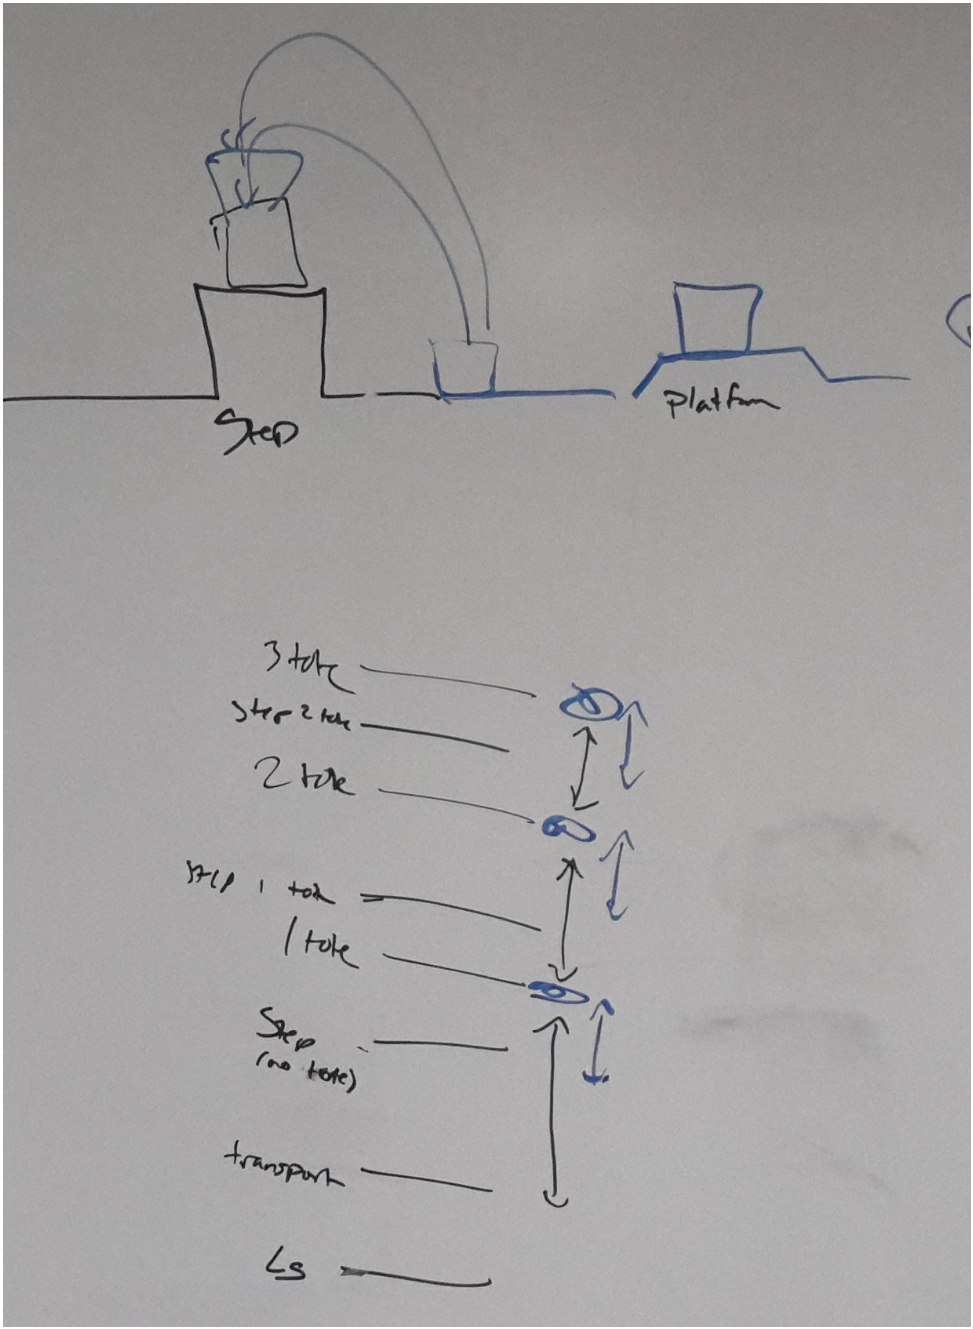 Step
Platform
3 tote
step 2 tote
2 tote
step 1 tote
1 tote
Step
(no tote)
transport